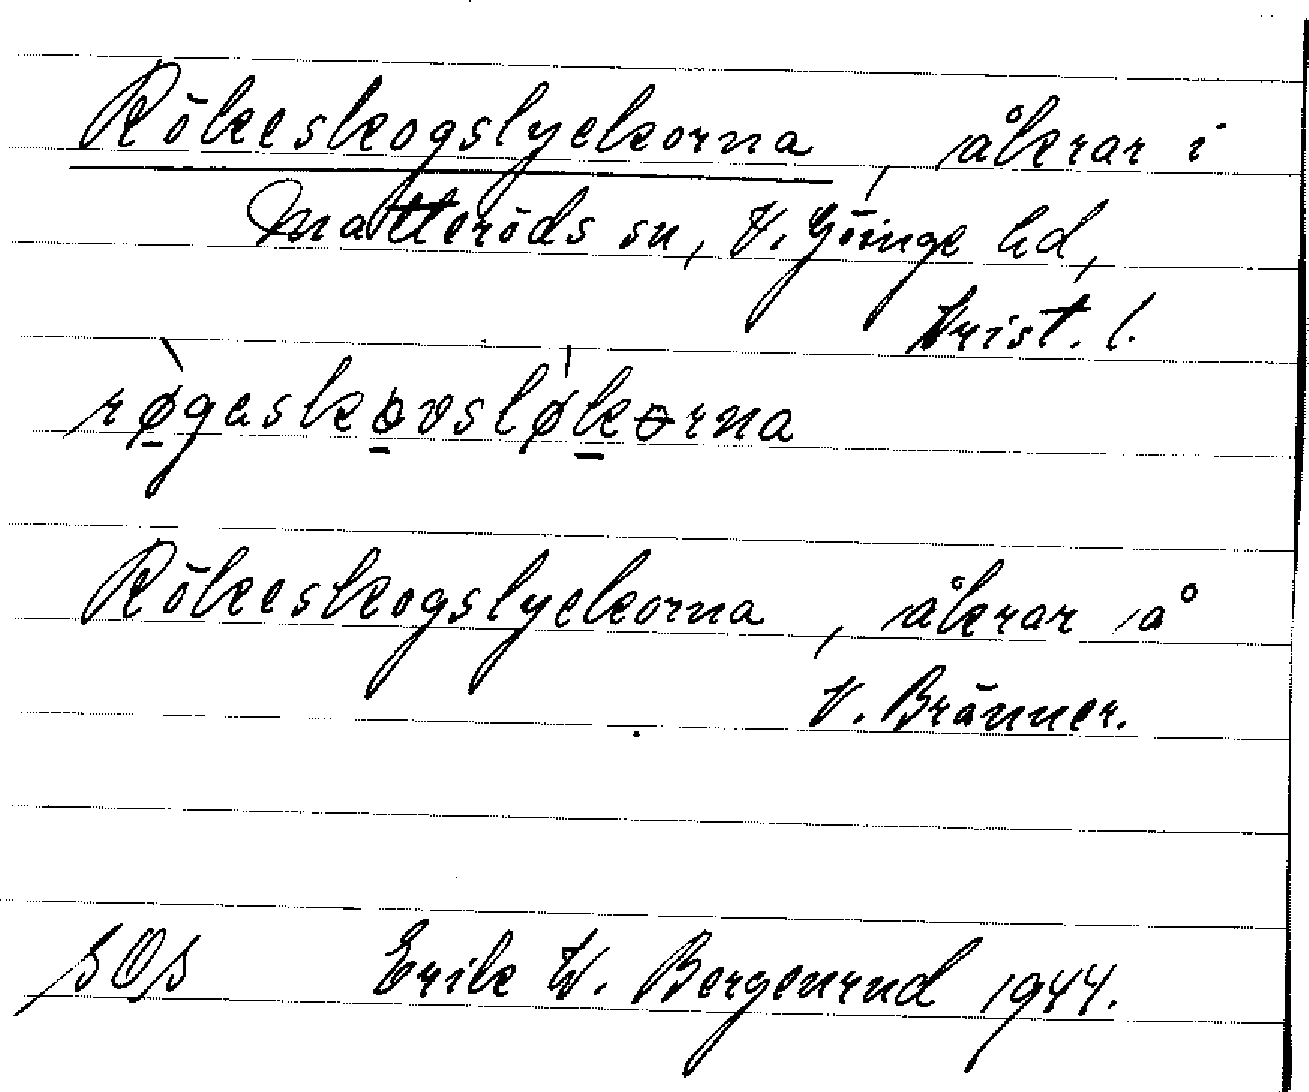 Rökeskogslyckorna, åkrar i
Matteröds sn, V. Göinge hd,
Krist. l.
rø̱̀gasko̱vslø̍ḵɵrna
Rökeskogslyckorna, åkrar å
V. Bränner.
SOS Erik W. Bergenrud 1944.